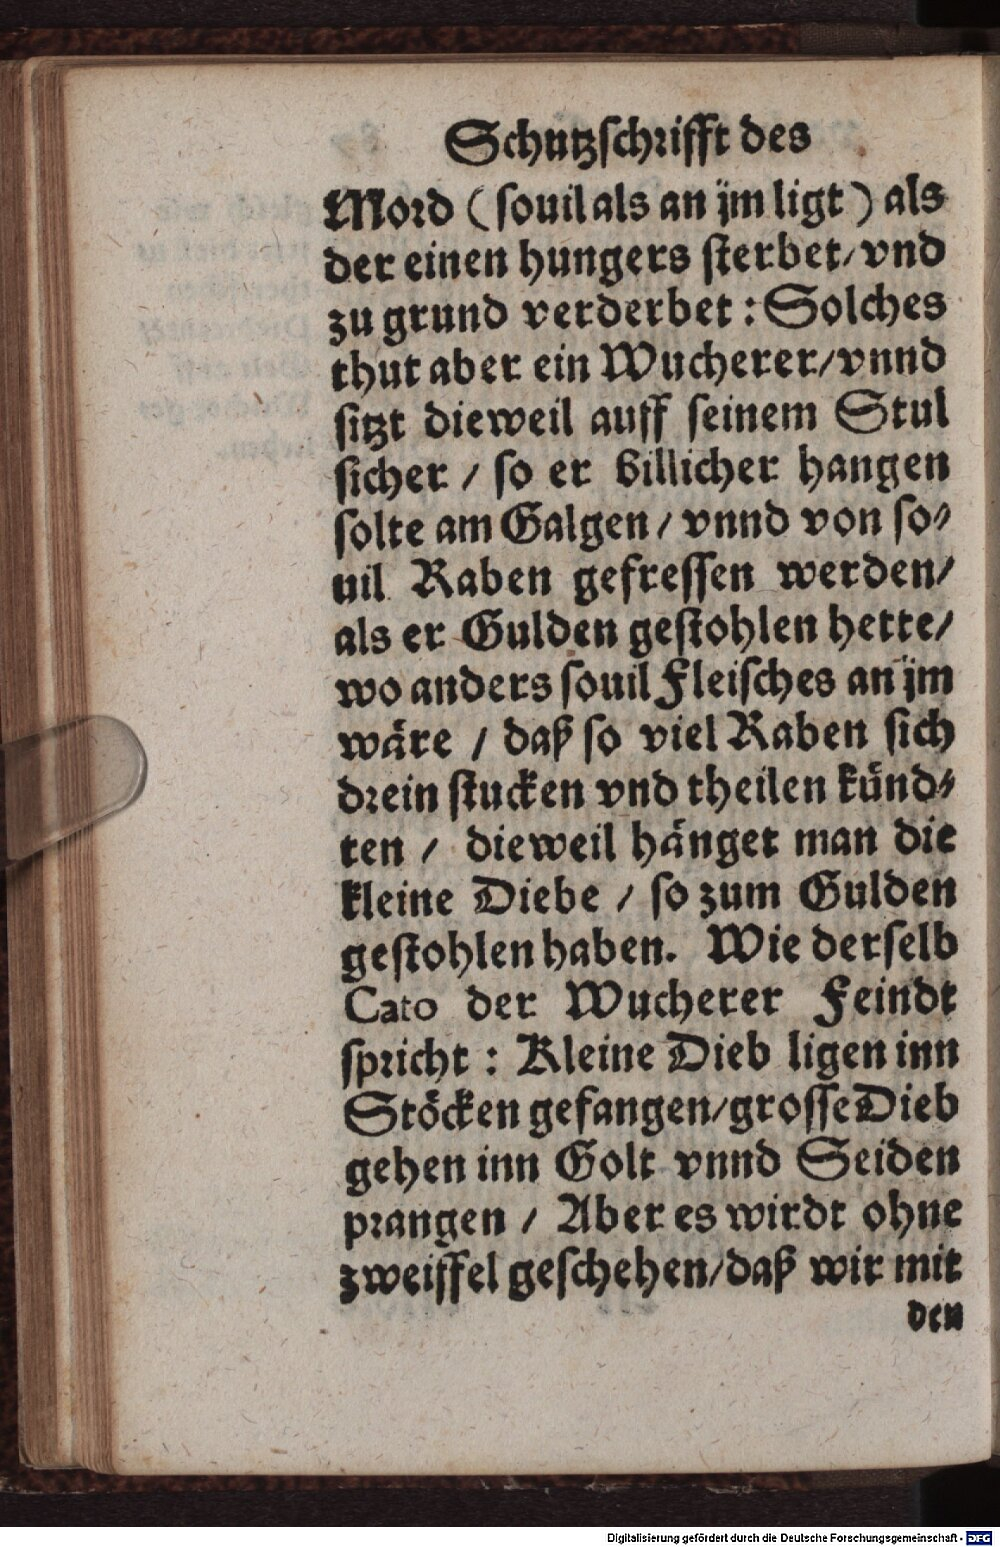 Schutzschrifft des
Mord (souil als an jm ligt) als
der einen hungers sterbet/ vnd
zu grund verderbet: Solches
thut aber ein Wucherer/vnnd
sitzt dieweil auff seinem Stul
sicher / so er billicher hangen
solte am Galgen / vnnd von so⸗
uil Raben gefressen werden/
als er Gulden gestohlen hette/
wo anders souil Fleisches an jm
wäre / daß so viel Raben sich
drein stucken vnd theilen künd⸗
ten / dieweil hänget man die
kleine Diebe / so zum Gulden
gestohlen haben. Wie derselb
Cato der Wucherer Feindt
spricht : Kleine Dieb ligen inn
Stöcken gefangen/grosse Dieb
gehen inn Golt vnnd Seiden
prangen / Aber es wirdt ohne
zweiffel geschehen/daß wir mit
den
Digitalisierung gefördert durch die Deutsche Forschungsgemeinschaft - DFG